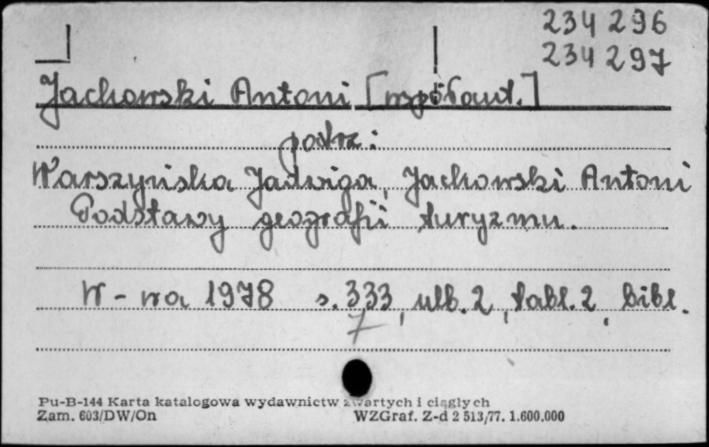 234 296
234 297
Jackowski Antoni [współaut.]
patrz:
Warszyńska Jadwiga, Jackowski Antoni
Podstawy geografii turyzmu.
W-wa 1978 s. 333, ulb. 2, tabl. 2, bibl.
7
Pu-B-144 Karta katalogowa wydawnictw zwartych i ciągłych
Zam. 603/DW/On WZGraf. Z-d 2 513/77. 1.600.000